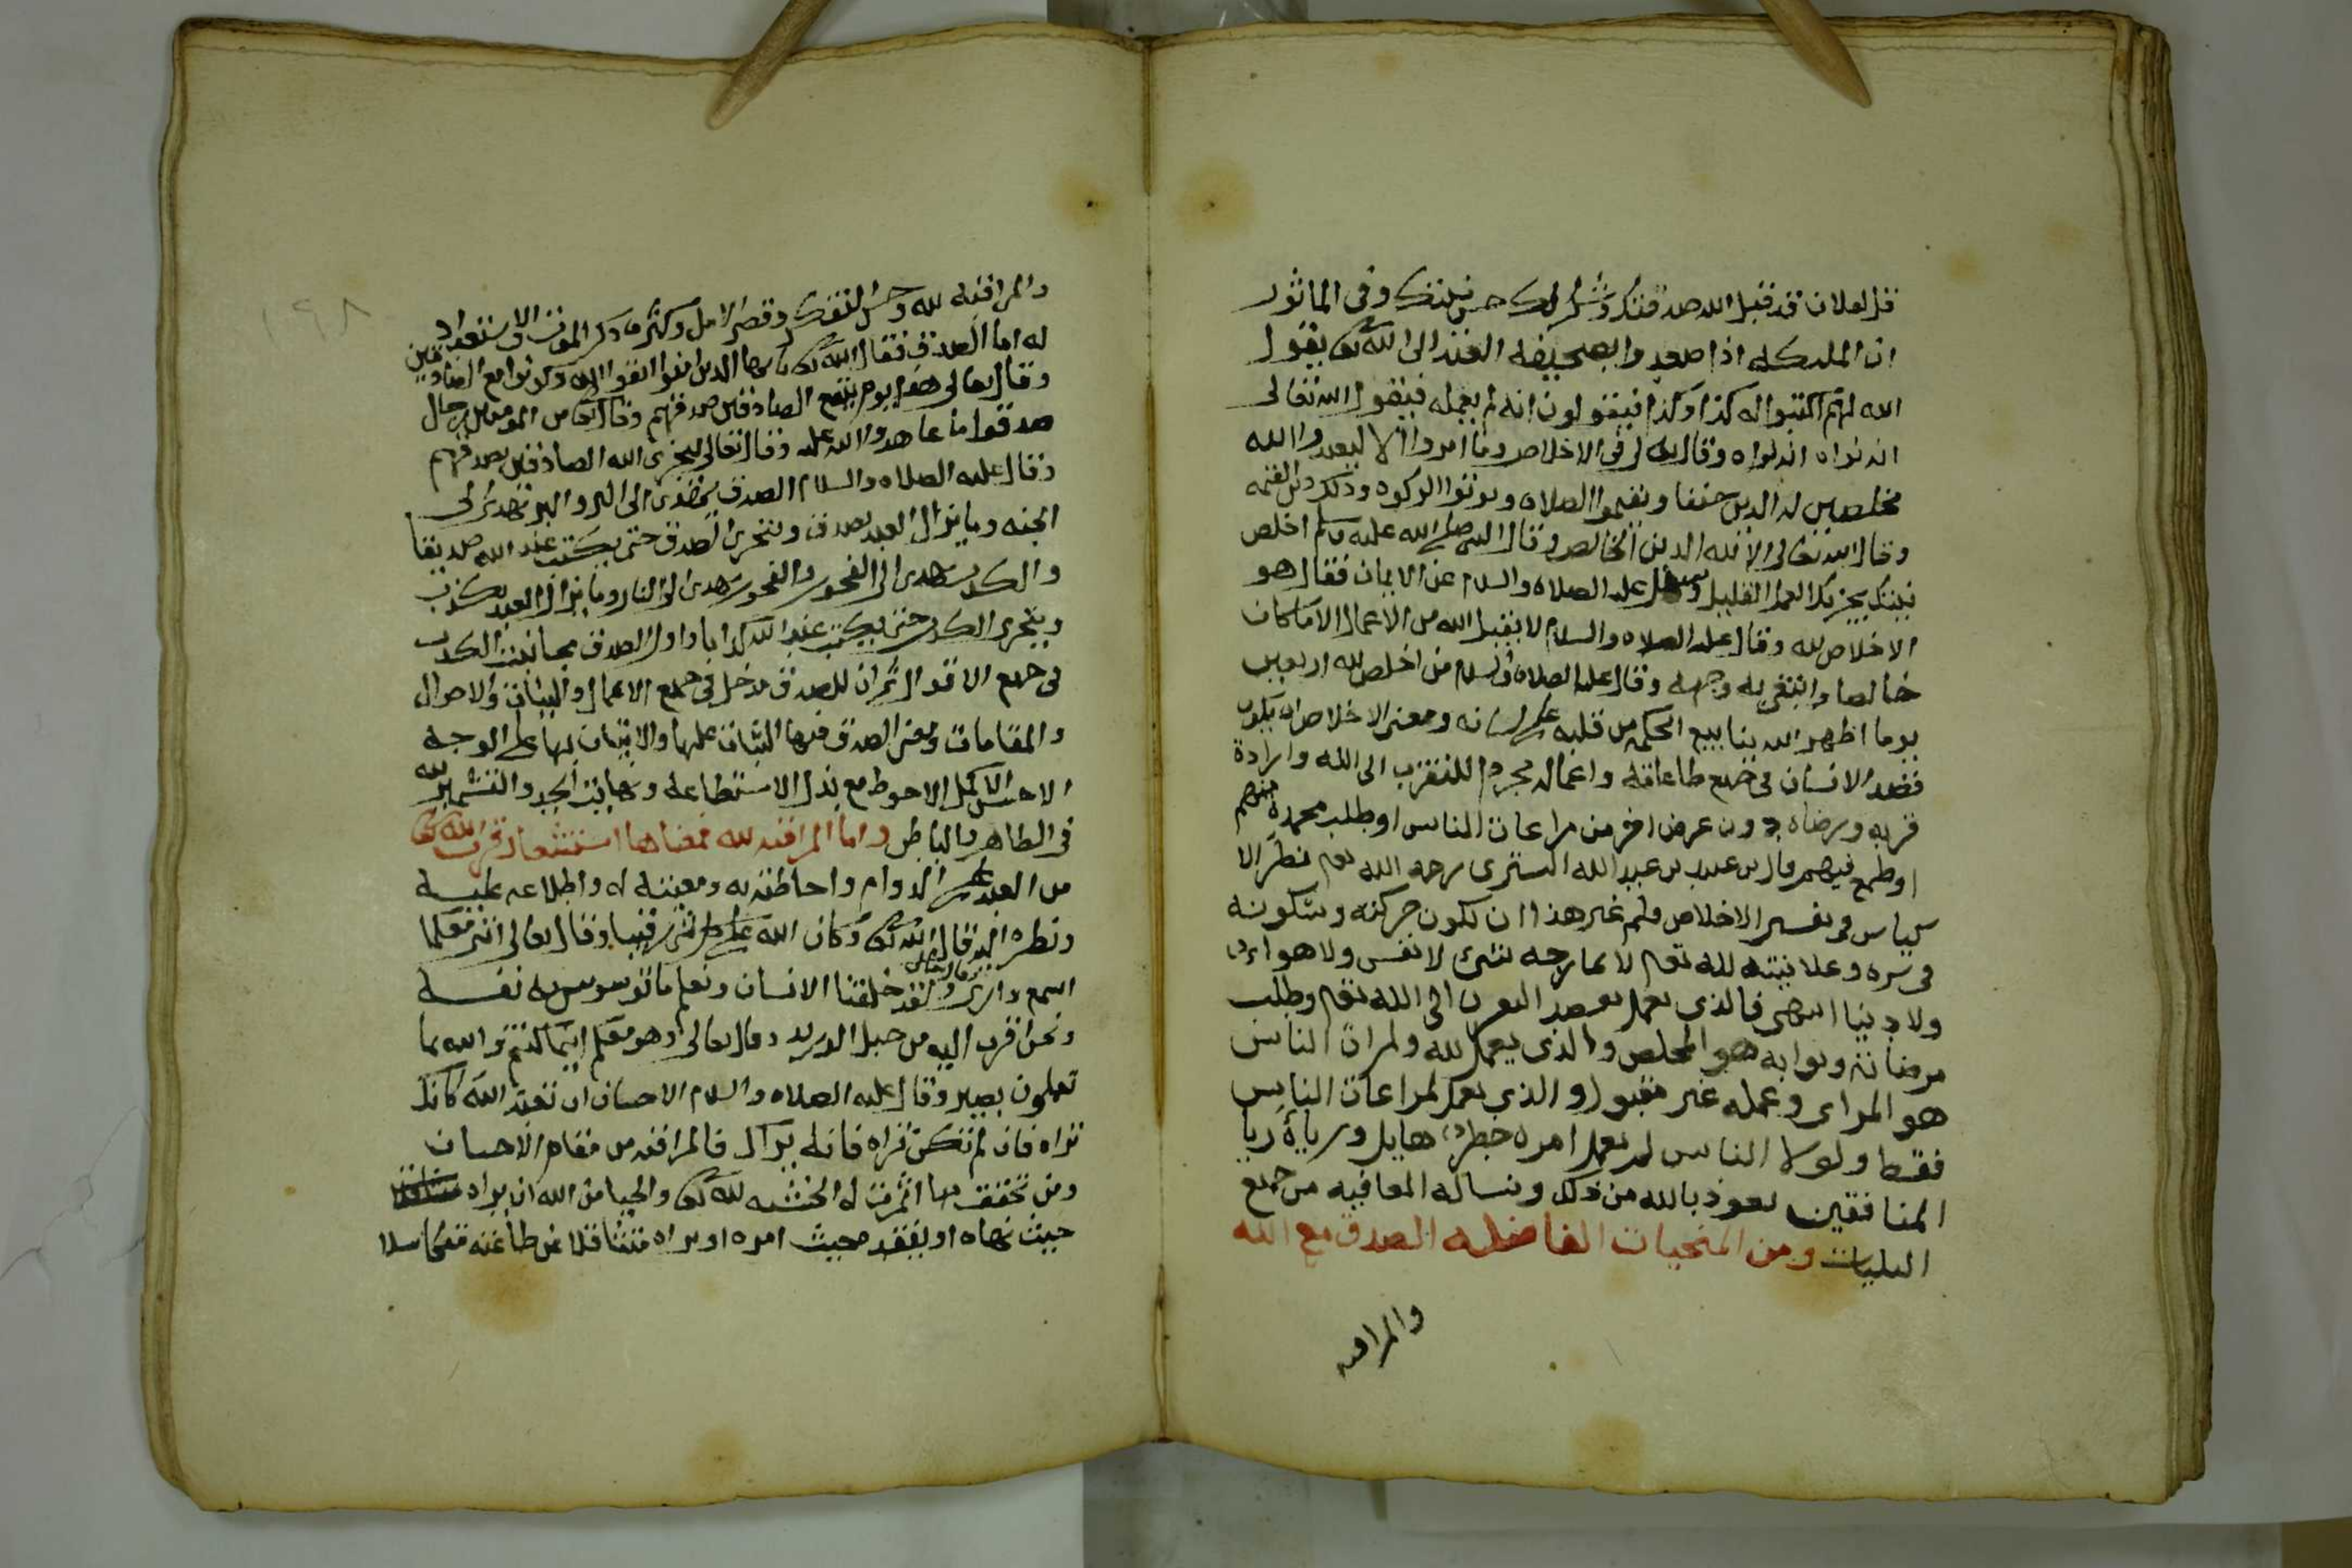 قل لفلان قد قبل الله صدقتك وشكر لك حسن نيتك وفي الماثور
ان الملىكه اذا صعدوا بصحيفه العبد الى الله تعالى يقول
الله لهم اكتبوا له كذا وكذا فيقولون انه لم يعمله فيقول الله تعالى
انه نواه انه نواه وقال تعالى في الاخلاص وما امروا الا ليعبدوا الله
مخلصين له الدين حنفا ويقيموا الصلاه ويوتوا الزكوه وذلك دين القيمه
وقال الله تعالى الا لله الدين الخالص وقال النبي صلى الله عليه وسلم اخلص
نيتك يجزيك العمل القليل وسئل عليه الصلاه والسلام عن الايمان فقال هو
الاخلاص لله وقال عليه الصلاه والسلام لا يقبل الله من الاعمال الا ما كان
خالصا وابتغي به وجهه وقال عليه الصلاه والسلام من اخلص لله اربعين
يوما اظهر الله ينابيع الحكمه من قلبه على لسانه ومعنى الاخلاص ان يكون
قصد الانسان في جميع طاعاته واعماله مجرد للتقرب الى الله وارادة
قربه ورضاه دون عرض اخر من مراعات الناس او طلب محمدة منهم
او طمع فيهم وقال سهل بن عبد الله التستري رحمه الله تعالى نظر الا
كياس في تفسير الاخلاص فلم غير هذا ان تكون حركته وسكونه
في سره وعلانيته لله تعالى لا يمازجه شي لا نفس ولا هوا
ولا دنيا انتهى فالذي يعمل بقصد التقرب الى الله تعالى وطلب
مرضاته وثوابه هو المخلص والذي يعمل لله ولمراات الناس
هو المراي وعمله غير مقبول والذي يعمل لمراعات الناس
فقط ولولا الناس لم يعمل امره خطر هايل ورياؤه ريا
المنافقين نعوذ بالله من ذلك ونساله العافيه من جميع
البليات ومن المنجيات الفاضله الصدق مع الله
والمراقبه
١٩٨
والمراقبه لله وحسن التفكر وقصر الامل وكثرة ذكر الموت والاستعداد
له اما الصدق فقال الله تعالى يا ايها الذين امنوا اتقوا الله وكونوا مع الصادقين
وقال تعالى هذا يوم ينفع الصادقين صدقهم وقال تعالى من المومنين رجال
صدقوا ما عاهدوا الله عليه وقال تعالى ليجزي الله الصادقين بصدقهم
وقال عليه الصلاه والسلام الصدق يهدي الى البر والبر يهدي الى
الجنه وما يزال العبد يصدق ويتحرى الصدق حتى يكتب عند الله صديقا
والكذب يهدي الى الفجور والفجور يهدي الى النار وما يزال العبد يكذب
ويتحرى الكذب حتى يكتب عند الله كذابا واول الصدق مجانبت الكذب
في جميع الاقوال ثم ان للصدق مدخل في جميع الاعمال والنيات والاحوال
والمقامات ومعنى الصدق فيها الثبات عليها والاتيان بها على الوجه
الاحسن الاكمل الاحوط مع بذل الاستطاعه ونهايت الجد والتشمير لله
في الظاهر والباطن واما المراقبه لله فمعناها استشعار قرب الله تعالى
من العبد على الدوام واحاطته به ومعيته له واطلاعه عليه
ونظره اليه قال الله تعالى وكان الله على كل شي رقيبا وقال تعالى انني معكما
اسمع وارى وقال تعالى ولقد خلقنا الانسان ونعلم ما توسوس به نفسه
ونحن اقرب اليه من حبل الوريد وقال تعالى وهو معكم اينما كنتم والله بما
تعملون بصير وقال عليه الصلاه والسلام الاحسان ان تعبد الله كانك
تراه فان لم تكن تراه فانه يراك فالمراقبه من مقام الاحسان
ومن تحقق بها اثمرت له الخشيه لله تعالى والحيا من الله ان يراه
حيث نهاه او يفقده حيث امره او يراه متثاقلا عن طاعته متكاسلا